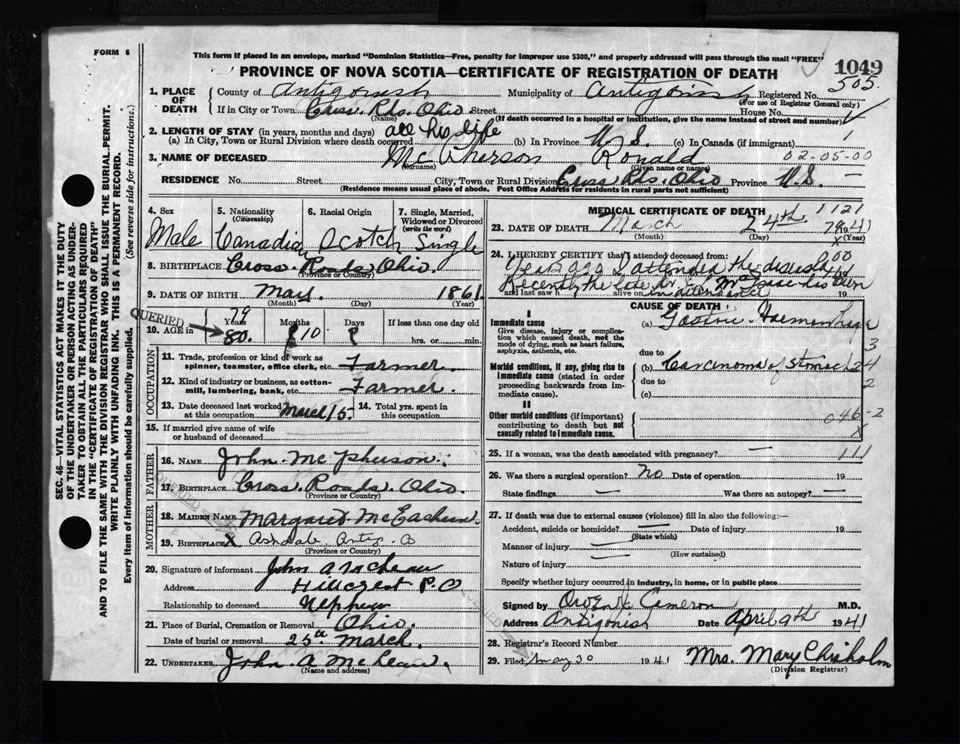 FORM 6
This form if placed in an envelope, marked "Dominion Statistics—Free, penalty for improper use $300," and properly addressed will pass through the mail "FREE"
PROVINCE OF NOVA SCOTIA—CERTIFICATE OF REGISTRATION OF DEATH
1049
505
SEC. 46—VITAL STATISTICS ACT MAKES IT THE DUTY
OF THE UNDERTAKER OR PERSON ACTING AS UNDER-
TAKER TO OBTAIN ALL THE PARTICULARS REQUIRED
IN THE "CERTIFICATE OF REGISTRATION OF DEATH"
AND TO FILE THE SAME WITH THE DIVISION REGISTRAR WHO SHALL ISSUE THE BURIAL PERMIT.
WRITE PLAINLY WITH UNFADING INK. THIS IS A PERMANENT RECORD.
Every item of information should be carefully supplied. (See reverse side for instructions.)
1. PLACE OF DEATH
County of Antigonish Municipality of Antigonish Registered No.
(For use of Registrar General only)
If in City or Town Cross Rds. Ohio Street House No.
(Name) (If death occurred in a hospital or institution, give the name instead of street and number)
2. LENGTH OF STAY (in years, months and days) all his life
(a) In City, Town or Rural Division where death occurred (b) In Province N.S. (c) In Canada (if immigrant)
3. NAME OF DECEASED McPherson Ronald 02-05-00
(Surname) (Given name or names)
RESIDENCE No. Street City, Town or Rural Division Cross Rds. Ohio Province N.S.
(Residence means usual place of abode. Post Office Address for residents in rural parts not sufficient)
4. Sex 5. Nationality (Citizenship) 6. Racial Origin 7. Single, Married, Widowed or Divorced (write the word)
Male Canadian Scotch Single
8. BIRTHPLACE Cross Roads Ohio.
(Province or Country)
9. DATE OF BIRTH May 1861
(Month) (Day) (Year)
QUERIED
10. AGE in Years Months Days If less than one day old
79
80. 10 hrs. or min.
OCCUPATION
11. Trade, profession or kind of work as spinner, teamster, office clerk, etc. Farmer.
12. Kind of industry or business, as cotton-mill, lumbering, bank, etc. Farmer.
13. Date deceased last worked at this occupation March 15. 14. Total yrs. spent in this occupation
15. If married give name of wife or husband of deceased
FATHER
16. Name John McPherson.
17. Birthplace Cross Roads Ohio.
(Province or Country)
MOTHER
18. MAIDEN NAME Margaret McEachern.
19. BIRTHPLACE X Ashdale, Antig. Co
(Province or Country)
20. Signature of informant John A McLean
Address Hillcrest P.O
Relationship to deceased Nephew
21. Place of Burial, Cremation or Removal Ohio.
Date of burial or removal 25th March.
22. UNDERTAKER John A McLean.
(Name and address)
MEDICAL CERTIFICATE OF DEATH
1121
23. DATE OF DEATH March 24th 1941
(Month) (Day) (Year)
24. I HEREBY CERTIFY that I attended deceased from:
and last saw h alive on 19
in attendance
CAUSE OF DEATH
I
Immediate cause
Give disease, injury or complication which caused death, not the mode of dying, such as heart failure, asphyxia, asthenia, etc.
(a) Gastric Haemorrhage
due to
Morbid conditions, if any, giving rise to immediate cause (stated in order proceeding backwards from immediate cause).
(b) Carcinoma of Stomach
due to
(c)
II
Other morbid conditions (if important) contributing to death but not causally related to immediate cause.
046-2
X
25. If a woman, was the death associated with pregnancy? — 111
26. Was there a surgical operation? No Date of operation 19
State findings — Was there an autopsy? —
27. If death was due to external causes (violence) fill in also the following:—
Accident, suicide or homicide? — Date of injury 19
(State which)
Manner of injury —
(How sustained)
Nature of injury —
Specify whether injury occurred in industry, in home, or in public place
Signed by Owen Cameron M.D.
Address Antigonish Date April 9th 1941
28. Registrar's Record Number
29. Filed May 30 1941 Mrs. Mary Chisholm
(Division Registrar)